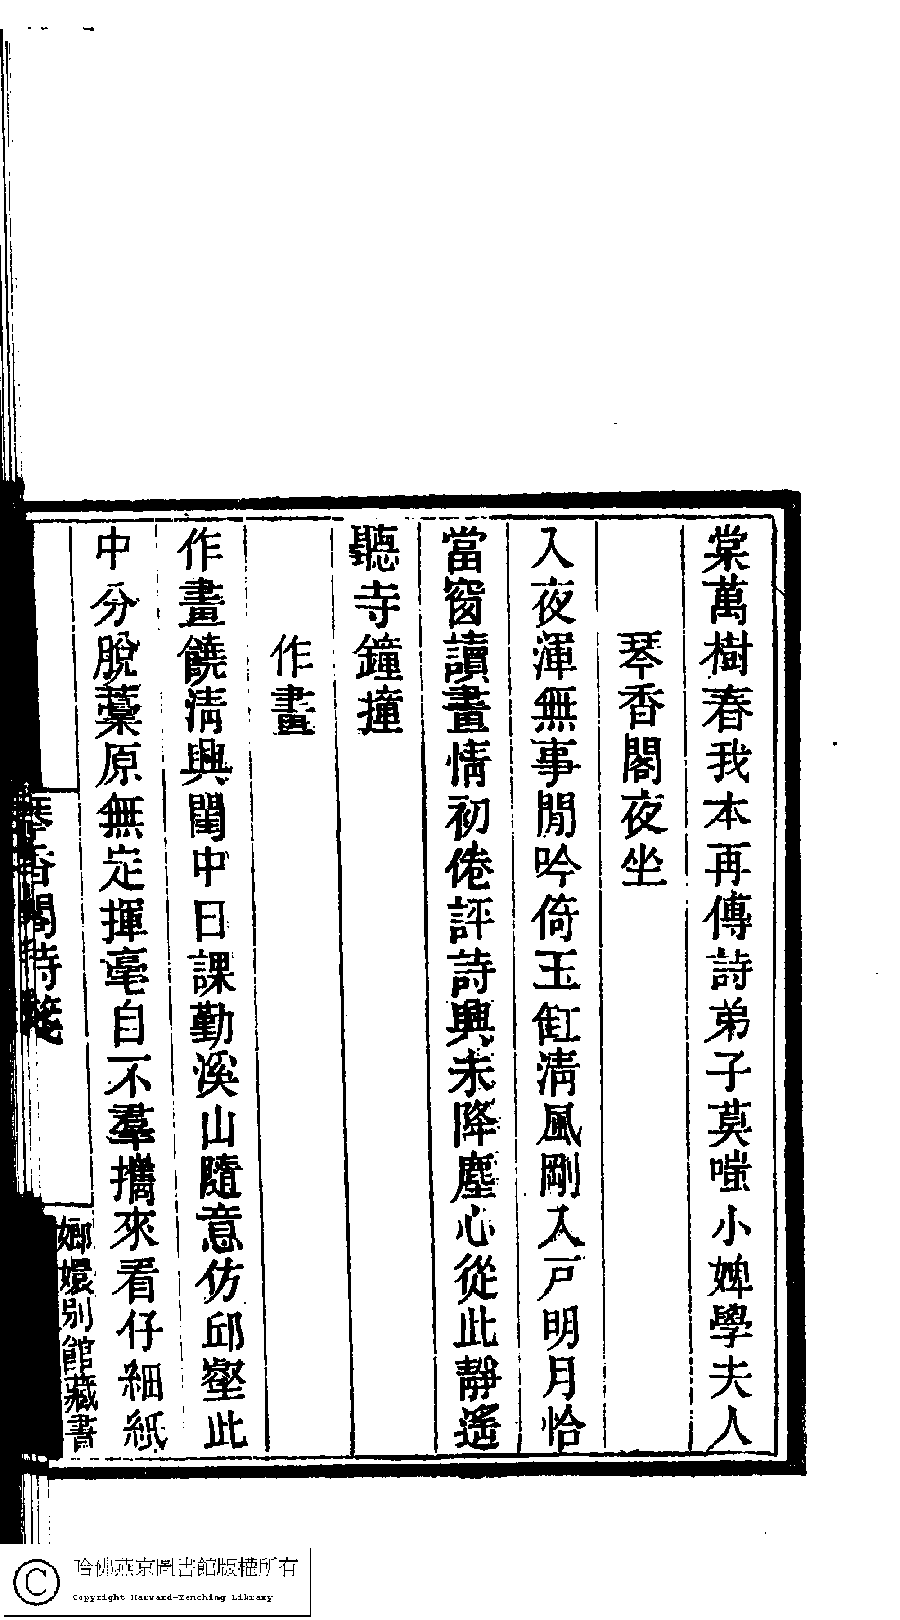 棠萬樹春我本再傳詩弟子莫嗤小婢學夫人
琴香閣夜坐
入夜渾無事閒吟倚玉缸淸風剛入戸明月恰
當窗讀畫情初倦評詩興未降塵心從此靜遙
聽寺鐘撞
作畫
作畫饒淸興閨中日課勤溪山隨意仿邱壑此
中分脫藁原無定揮毫自不羣攜來看仔細紙
琴香閣詩箋
嫏嬛別館藏書
哈佛燕京圖書館版權所有
Copyright Harvard-Yenching Library